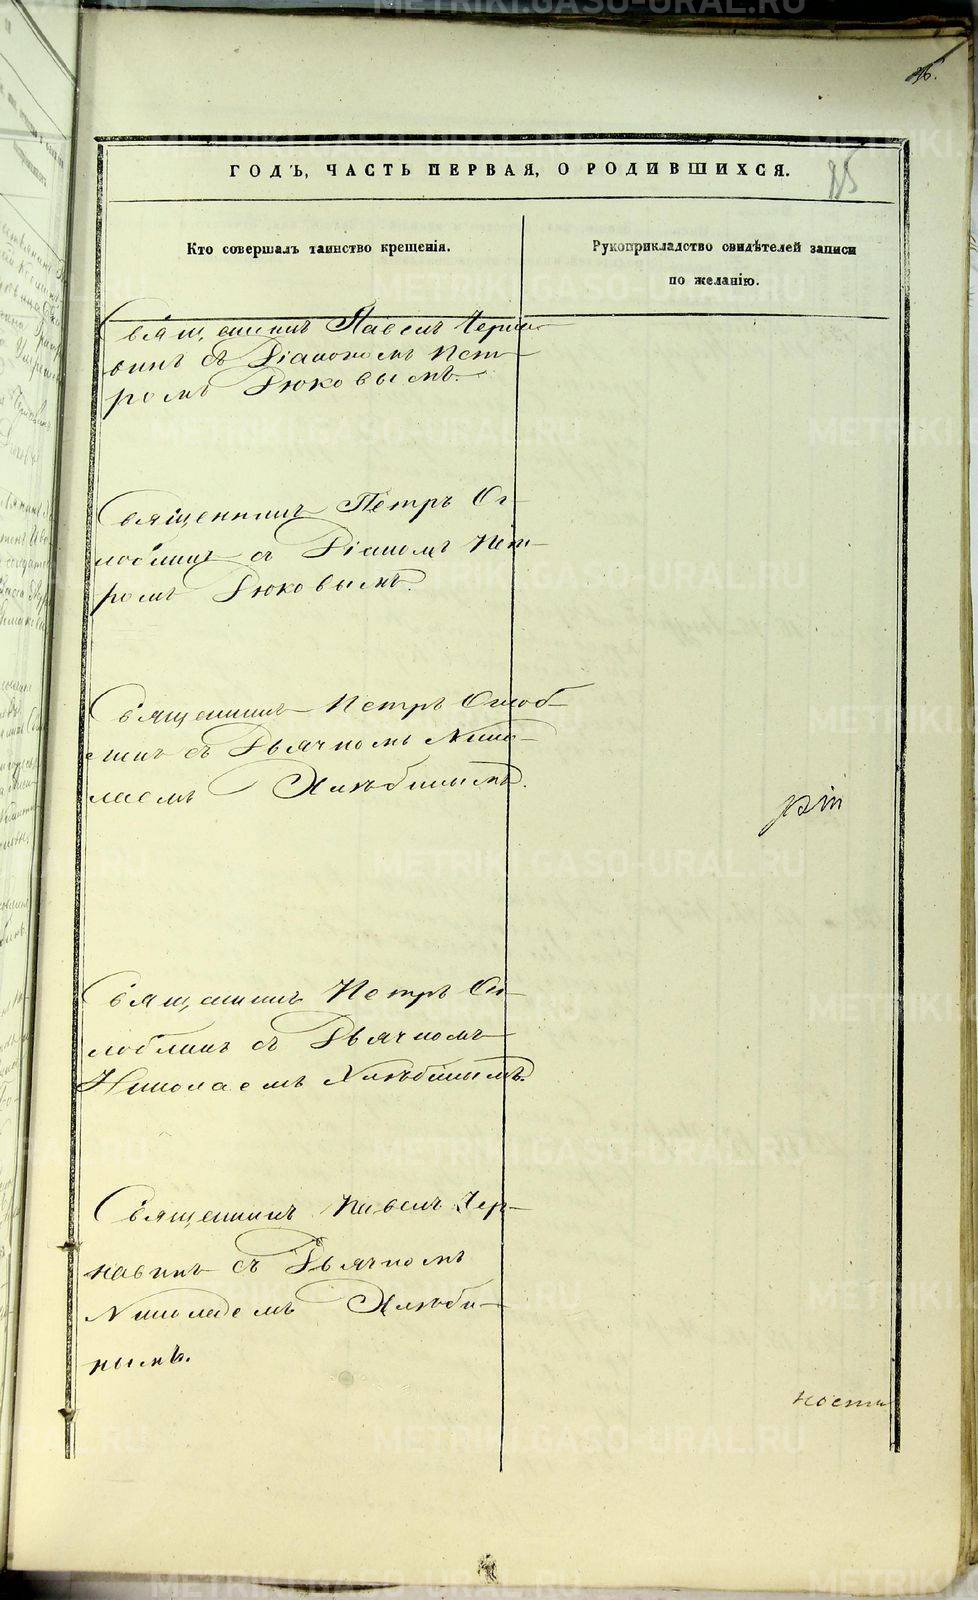 ГОДЪ, ЧАСТЬ ПЕРВАЯ, О РОДИВШИХСЯ.
85
Кто совершалъ таинство крещенія.
Рукоприкладство свидѣтелей записи
по желанію.
Священникъ Павелъ Черна-
винъ съ Діакономъ Пет-
ромъ Дюковымъ.
Священникъ Петръ Ог-
лоблинъ съ Діакономъ Пет-
ромъ Дюковымъ.
Священникъ Петръ Оглоб-
линъ съ Дьячкомъ Нико-
лаемъ Хлѣбинымъ.
Священникъ Петръ Ог-
лоблинъ съ Дьячкомъ
Николаемъ Хлѣбинымъ.
Священникъ Павелъ Чер-
навинъ съ Дьячкомъ
Николаемъ Хлѣби-
нымъ.
METRIKI.GASO-URAL.RU